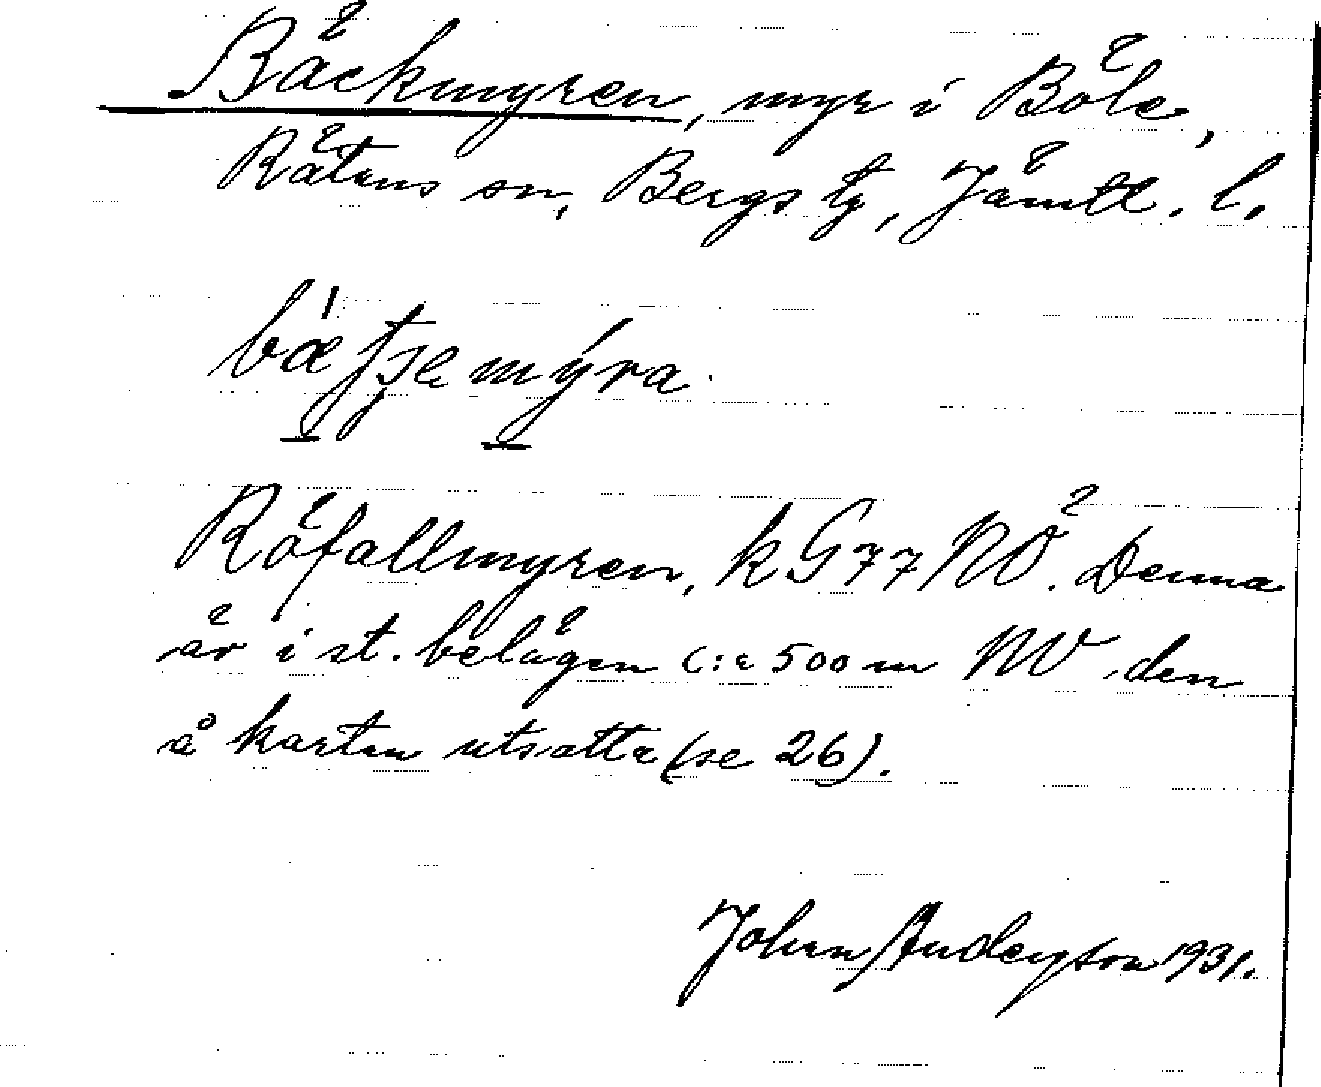 Bäckmyren, myr i Böle,
Rätans sn, Bergs tg, Jämtl. l.
mýra.
Röfallmyren, k G77 NO. Denna
är i st. belägen c:a 500 m NV den
å kartan utsatta (se 26).
John Andersson 1931.